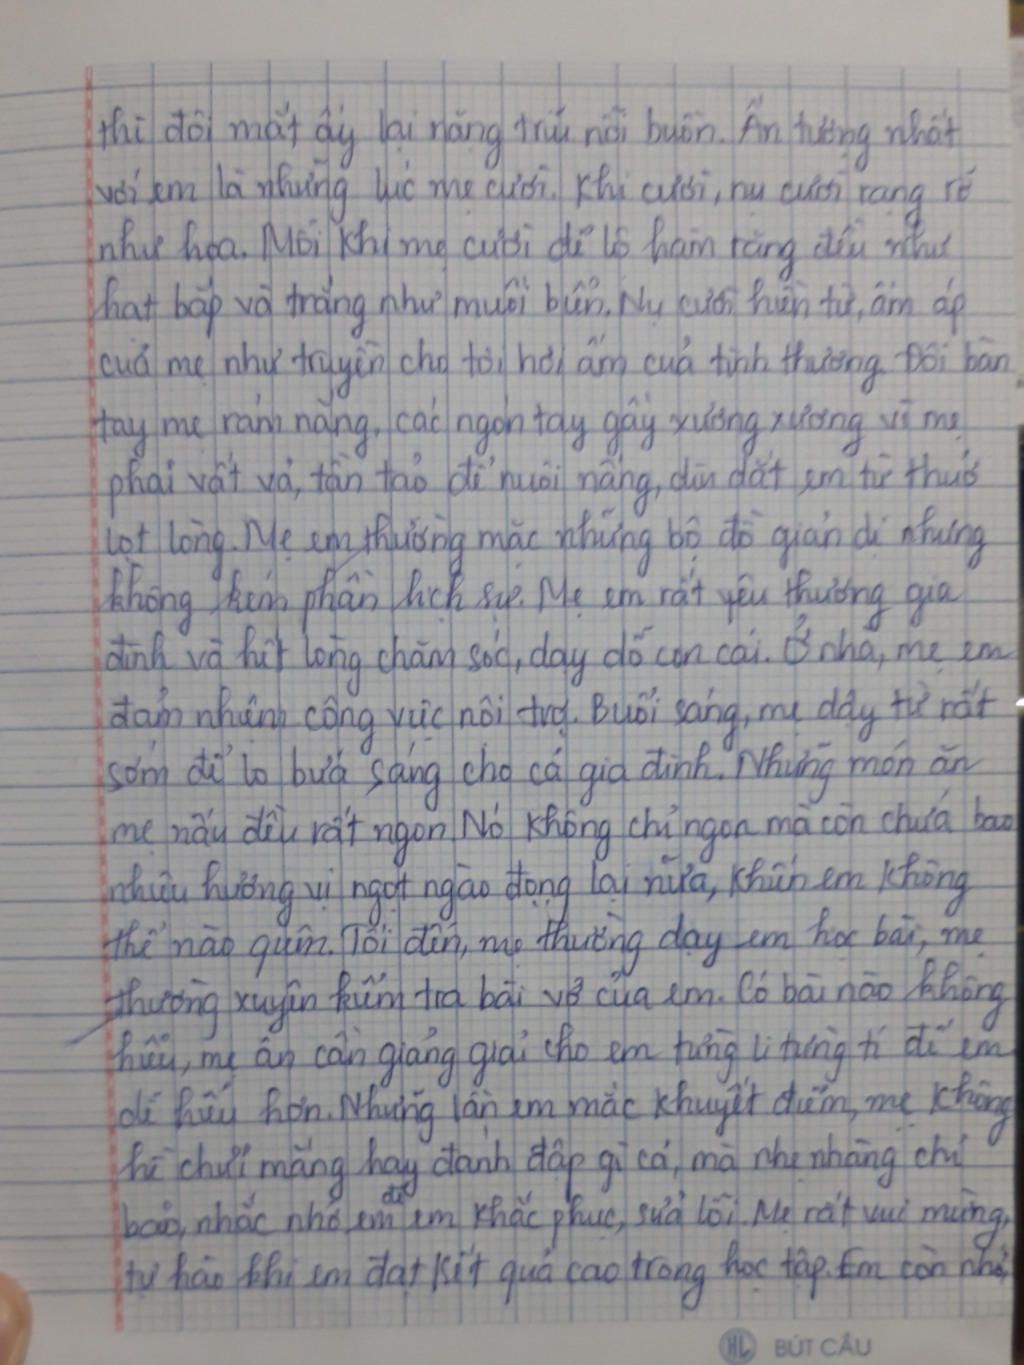 thì đôi mắt ấy lại nặng trĩu nỗi buồn. Ấn tượng nhất
với em là những lúc mẹ cười. Khi cười, nụ cười rạng rỡ
như hoa. Mỗi khi mẹ cười để lộ hàm răng đều như
hạt bắp và trắng như muối biển. Nụ cười hiền từ, ấm áp
của mẹ như truyền cho tôi hơi ấm của tình thương. Đôi bàn
tay mẹ rám nắng, các ngón tay gầy xương xương vì mẹ
phải vất vả, tần tảo để nuôi nấng, dìu dắt em từ thuở
lọt lòng. Mẹ em thường mặc những bộ đồ giản dị nhưng
không kém phần lịch sự. Mẹ em rất yêu thương gia
đình và hết lòng chăm sóc, dạy dỗ con cái. Ở nhà, mẹ em
đảm nhiệm công vực nội trợ. Buổi sáng, mẹ dậy từ rất
sớm để lo bữa sáng cho cả gia đình. Những món ăn
mẹ nấu đều rất ngon. Nó không chỉ ngon mà còn chứa bao
nhiêu hương vị ngọt ngào đọng lại nữa, khiến em không
thể nào quên. Tối đến, mẹ thường dạy em học bài, mẹ
thường xuyên kiểm tra bài vở của em. Có bài nào không
hiểu, mẹ ân cần giảng giải cho em từng li từng tí để em
dễ hiểu hơn. Những lần em mắc khuyết điểm, mẹ không
hề chửi mắng hay đánh đập gì cả, mà nhẹ nhàng chỉ
bảo, nhắc nhở em để em khắc phục, sửa lỗi. Mẹ rất vui mừng,
tự hào khi em đạt kết quả cao trong học tập. Em còn nhớ
HL BÚT CÂU